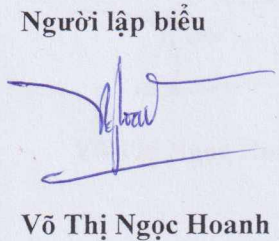 Người lập biểu
Võ Thị Ngọc Hoanh